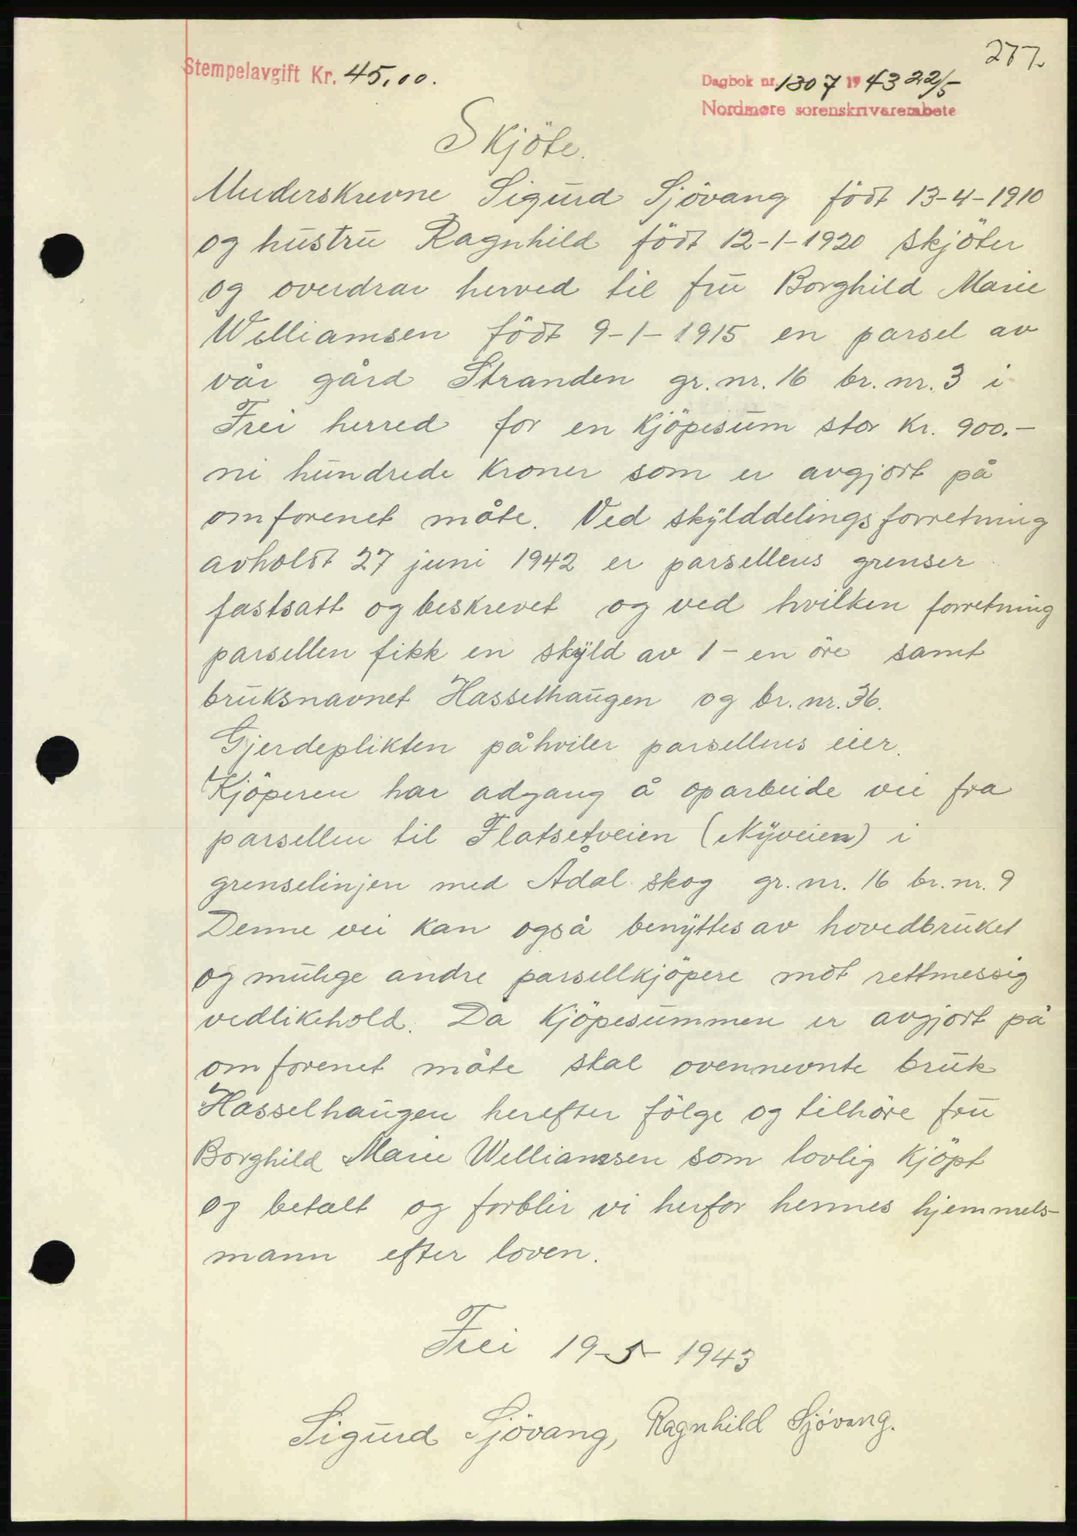 277.
Stempelavgift Kr. 45,00.
Dagbok nr. 1307 1943 22/5
Nordmøre sorenskriverembete
Skjöte.
Underskrevne Sigurd Sjövang födt 13-4-1910
og hustru Ragnhild födt 12-1-1920 skjöter
og overdrar herved til fru Borghild Marie
Williamsen födt 9-1-1915 en parsel av
vår gård Stranden gr.nr. 16 br.nr. 3 i
Frei herred for en kjöpesum stor kr. 900.-
ni hundrede kroner som er avgjort på
omforenet måte. Ved skylddelingsforretning
avholdt 27 juni 1942 er parsellens grenser
fastsatt og beskrevet og ved hvilken forretning
parsellen fikk en skyld av 1 - en öre samt
bruksnavnet Hasselhaugen og br.nr. 36.
Gjerdeplikten påhviler parsellens eier.
Kjöperen har adgang å oparbeide vei fra
parsellen til Flatsetveien (Nyveien) i
grenselinjen med Ådal skog gr.nr. 16 br.nr. 9
Denne vei kan også benyttes av hovedbruket
og mulige andre parsellkjöpere mot rettmessig
vedlikehold. Da kjöpesummen er avgjort på
omforenet måte skal ovennevnte bruk
Hasselhaugen herefter fölge og tilhöre fru
Borghild Marie Williamsen som lovlig kjöpt
og betalt og forblir vi herfor hennes hjemmels-
mann efter loven.
Frei 19-5-1943
Sigurd Sjövang, Ragnhild Sjövang.